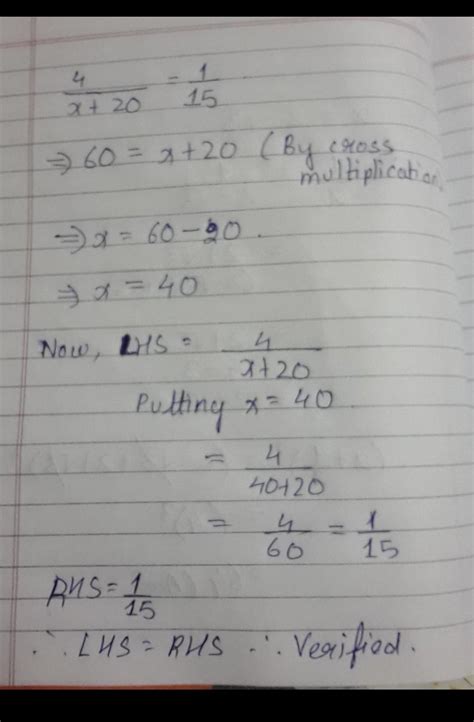 4/(x+20) = 1/15
⇒ 60 = x+20 (By cross
multiplication)
⇒ x = 60-20.
⇒ x = 40
Now, LHS = 4/(x+20)
Putting x = 40.
= 4/(40+20)
= 4/60 = 1/15
RHS = 1/15
∴ LHS = RHS ∴ Verified.